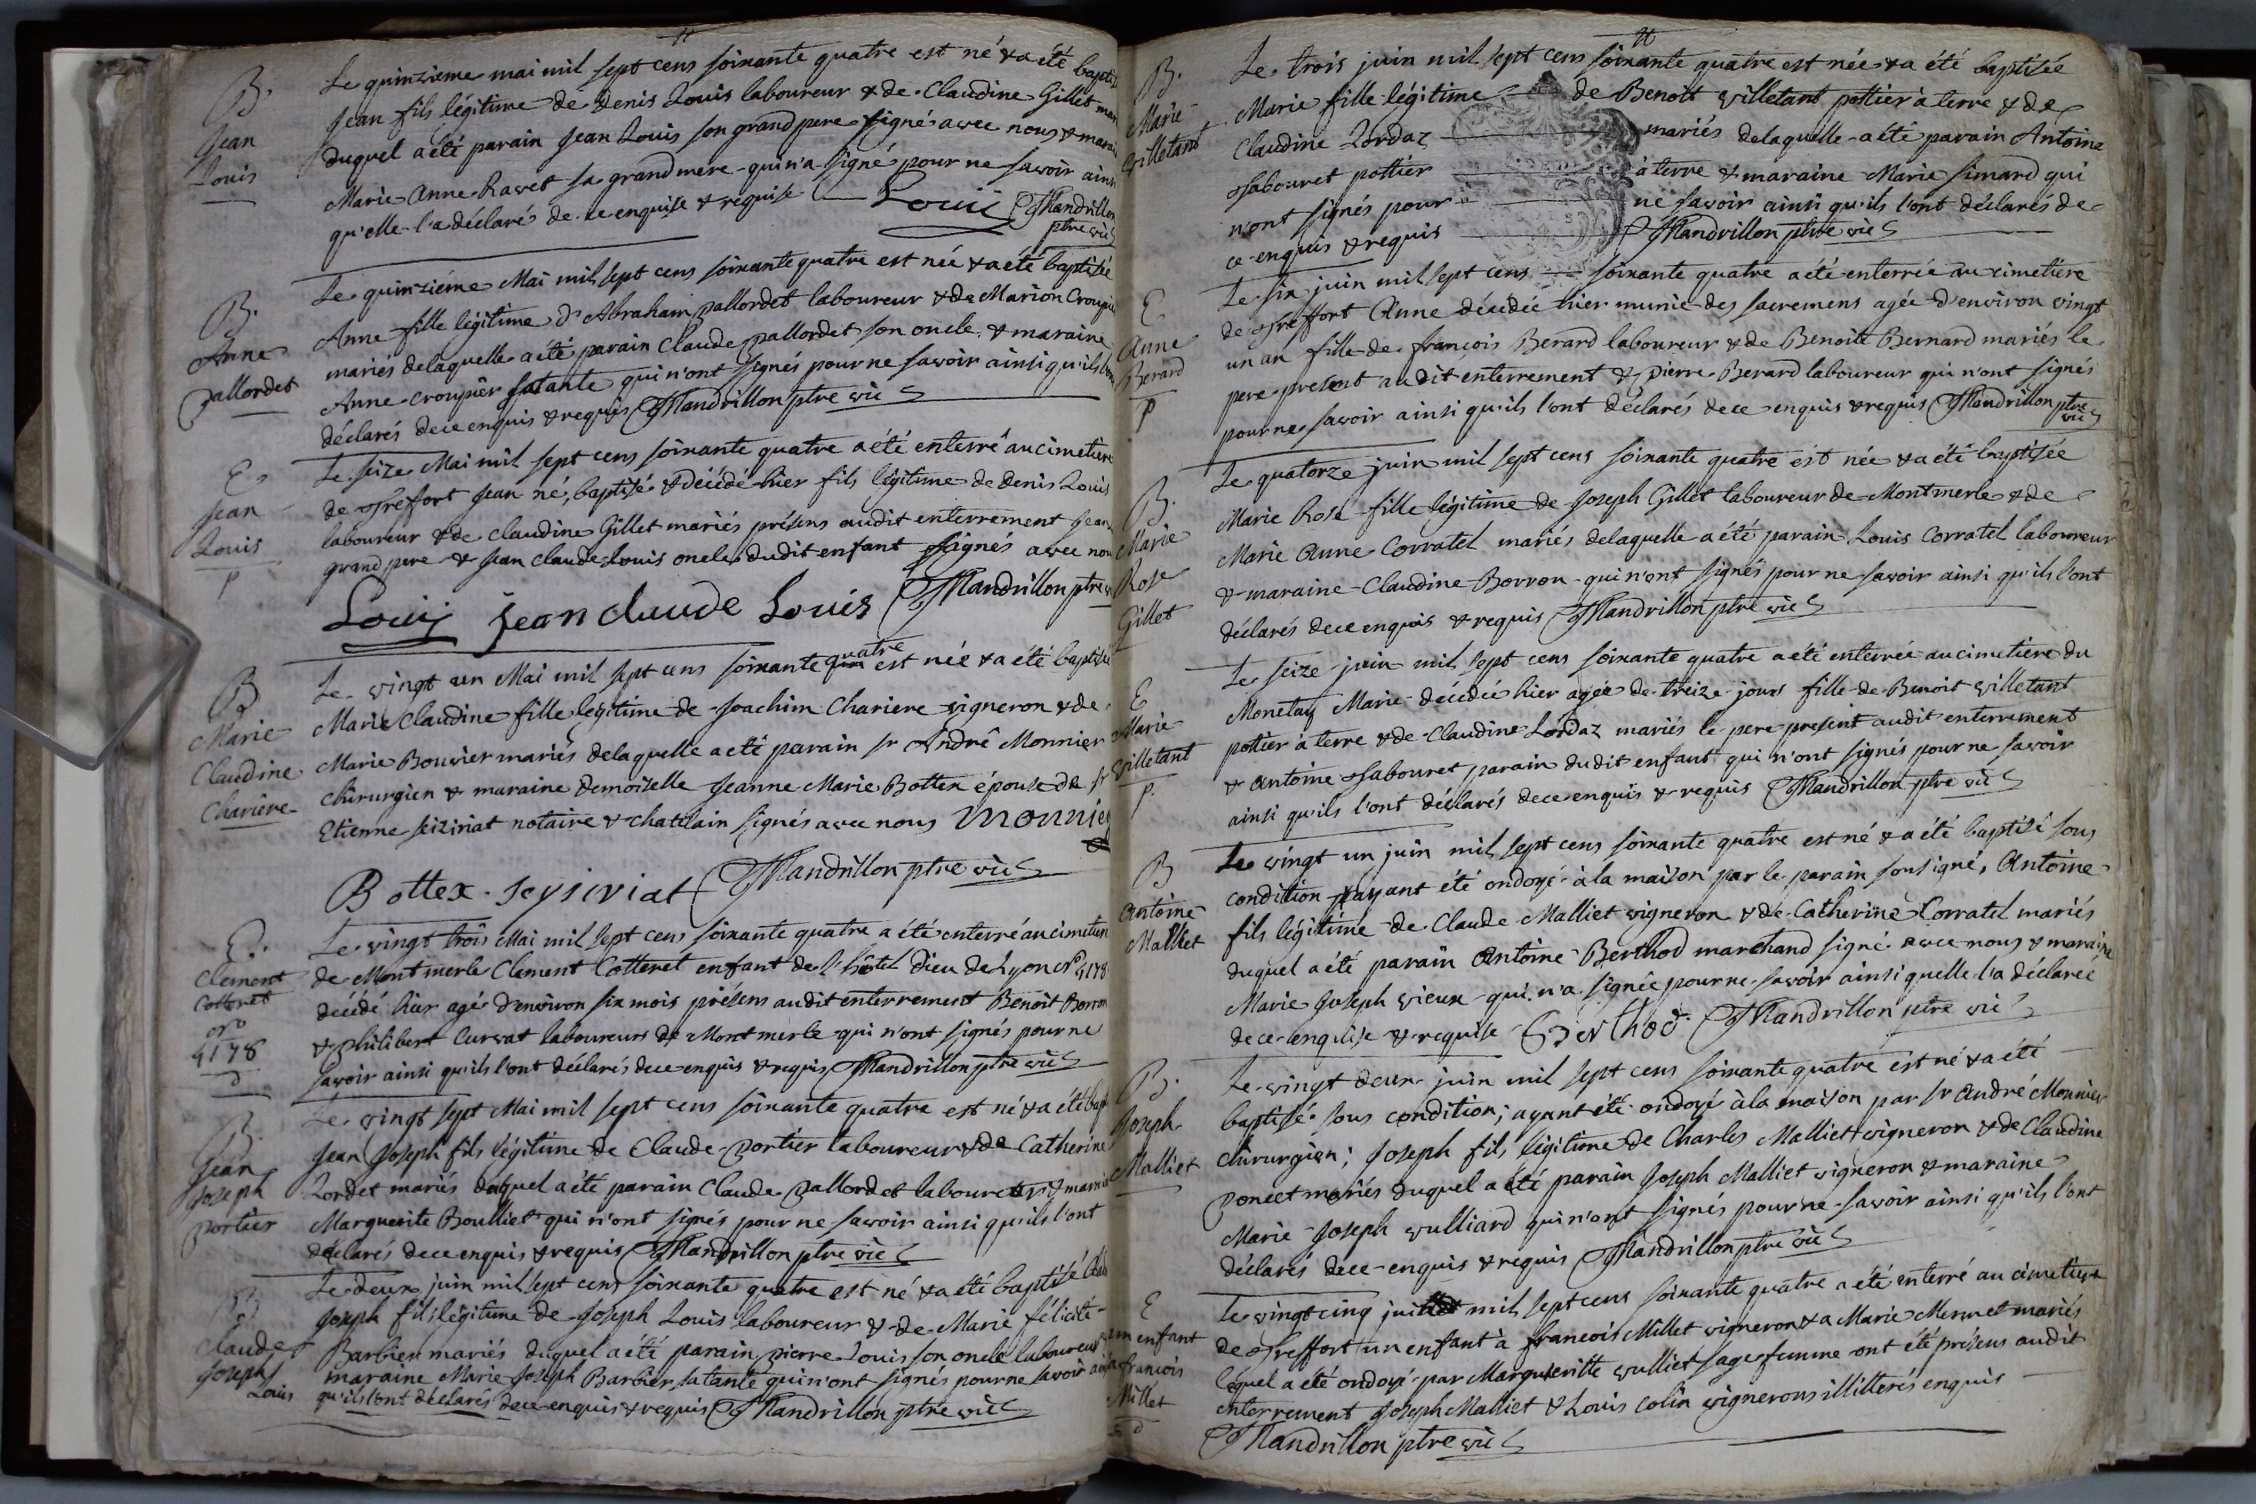 B.
Jean
Louis
Le quinzieme mai mil sept cens soixante quatre est né & a été baptisé
Jean fils légitime de Denis Louis laboureur & de Claudine Gillet
duquel a été parain Jean Louis son grand pere signé avec nous &
Marie Anne Ravet sa grand mere qui n'a signé pour ne savoir ainsi
qu'elle l'a déclarés de ce enquise & requise Louis Mandrillon
ptre vic
B.
Anne
pallordet
Le quinziéme Mai mil sept cens soixante quatre est née & a été baptisée
Anne fille légitime d'Abraham pallordet laboureur & de Marion
mariés delaquelle a été parain Claude pallordet son oncle & maraine
Anne croupier sa tante qui n'ont signés pour ne savoir ainsi qu'ils l'ont
déclarés de ce enquis & requis Mandrillon ptre vic
E
Jean
Louis
p
Le seize Mai mil sept cens soixante quatre a été enterré au cimetiere
de Treffort Jean né, baptisé & décédé hier fils légitime de Denis Louis
laboureur & de Claudine Gillet mariés présens audit enterrement Jean
grand pere & Jean Claude Louis oncle dudit enfant signés avec nous
Louis Jean claude Louis Mandrillon ptre
B
Marie
Claudine
Chariere
Le vingt un Mai mil sept cens soixante quatre est née & a été baptisée
Marie Claudine fille légitime de Joachim Chariere vigneron & de
Marie Bouvier mariés delaquelle a eté parain sr André Monnier
chirurgien & maraine Demoiselle Jeanne Marie Bottex épouse de sr
Etienne seiziriat notaire & chatelain signés avec nous Monnier
Bottex. Seysiriat Mandrillon ptre vic
E.
Clement
Cotteret
nro
4178
d
Le vingt trois Mai mil sept cens soixante quatre a été enterré au cimetiere
de Montmerle Clement Cotteret enfant de l'hôtel Dieu de Lyon nro 4178
décédé hier agé d'environ six mois présens audit enterrement Benoit Borron
& philibert Curvat laboureurs de Montmerle qui n'ont signés pour ne
savoir ainsi qu'ils l'ont déclarés de ce enquis & requis Mandrillon ptre vic
B
Jean
Joseph
portier
Le vingt sept Mai mil sept cens soixante quatre est né & a été
Jean Joseph fils légitime de Claude portier laboureur & de Catherine
Lordet mariés duquel a été parain Claude pallordet laboureur &
Marguerite Boulliet qui n'ont signés pour ne savoir ainsi qu'ils l'ont
déclarés de ce enquis & requis Mandrillon ptre vic
B
Claude
Joseph
Louis
Le deux juin mil sept cens soixante quatre est né & a été baptisé
Joseph fils légitime de Joseph Louis laboureur & de Marie félicité
Barbier mariés duquel a été parain pierre Louis son oncle laboureur
maraine Marie Joseph Barbier sa tante qui n'ont signés pour ne savoir
qu'ils l'ont déclarés de ce enquis & requis Mandrillon ptre vic
B.
Marie
villetant
Le trois juin mil sept cens soixante quatre est née & a été baptisée
Marie fille légitime de Benoit villetant pottier à terre & de
Claudine Lordaz mariés delaquelle a été parain Antoine
Tabouret pottier à terre & maraine Marie Simard qui
n'ont signés pour ne savoir ainsi qu'ils l'ont déclarés de
ce enquis & requis Mandrillon ptre vic
E
Anne
Berard
p
Le six juin mil sept cens soixante quatre a été enterrée au cimetiere
de Treffort Anne décédée hier munie des sacremens agée d'environ vingt
un an fille de françois Berard laboureur & de Benoite Bernard mariés le
pere present audit enterrement & pierre Berard laboureur qui n'ont signés
pour ne savoir ainsi qu'ils l'ont déclarés de ce enquis & requis Mandrillon ptre
vic
B.
Marie
Rose
Gillet
Le quatorze juin mil sept cens soixante quatre est née & a été baptisée
Marie Rose fille légitime de Joseph Gillet laboureur de Montmerle & de
Marie Anne Corratel mariés delaquelle a été parain Louis Corratel laboureur
& maraine Claudine Borron qui n'ont signés pour ne savoir ainsi qu'ils l'ont
déclarés de ce enquis & requis Mandrillon ptre vic
E
Marie
villetant
p.
Le seize juin mil sept cens soixante quatre a été enterrée au cimetiere du
Monetay Marie décédée hier agée de treize jours fille de Benoit villetant
pottier à terre & de Claudine Lordaz mariés le pere present audit enterrement
& Antoine Tabouret parain dudit enfant qui n'ont signés pour ne savoir
ainsi qu'ils l'ont déclarés de ce enquis & requis Mandrillon ptre vic
B
Antoine
Malliet
Le vingt un juin mil sept cens soixante quatre est né & a été baptisé sous
condition ayant été ondoyé à la maison par le parain sousigné, Antoine
fils légitime de Claude Malliet vigneron & de Catherine Corratel mariés
duquel a été parain Antoine Berthod marchand signé avec nous & maraine
Marie Joseph vieux qui n'a signée pour ne savoir ainsi quelle l'a déclareé
de ce enquise & requise Berthod Mandrillon ptre vic
B.
Joseph
Malliet
Le vingt deux juin mil sept cens soixante quatre est né & a été
baptisé sous condition; ayant été ondoyé à la maison par sr André Monnier
chirurgien; Joseph fils légitime de Charles Malliet vigneron & de Claudine
poncet mariés duquel a été parain Joseph Malliet vigneron & maraine
Marie Joseph vulliard qui n'ont signés pour ne savoir ainsi qu'ils l'ont
déclarés de ce enquis & requis Mandrillon ptre vic
E
un enfant
a françois
Millet
d
Le vingt cinq juillet mil sept cens soixante quatre a été enterré au cimetiere
de Treffort un enfant à francois Millet vigneron & a Marie Mermet mariés
lequel a été ondoyé par Margueritte vulliet sage femme ont été présens audit
enterrement Joseph Malliet & Louis Colin vignerons illitterés enquis
Mandrillon ptre vic